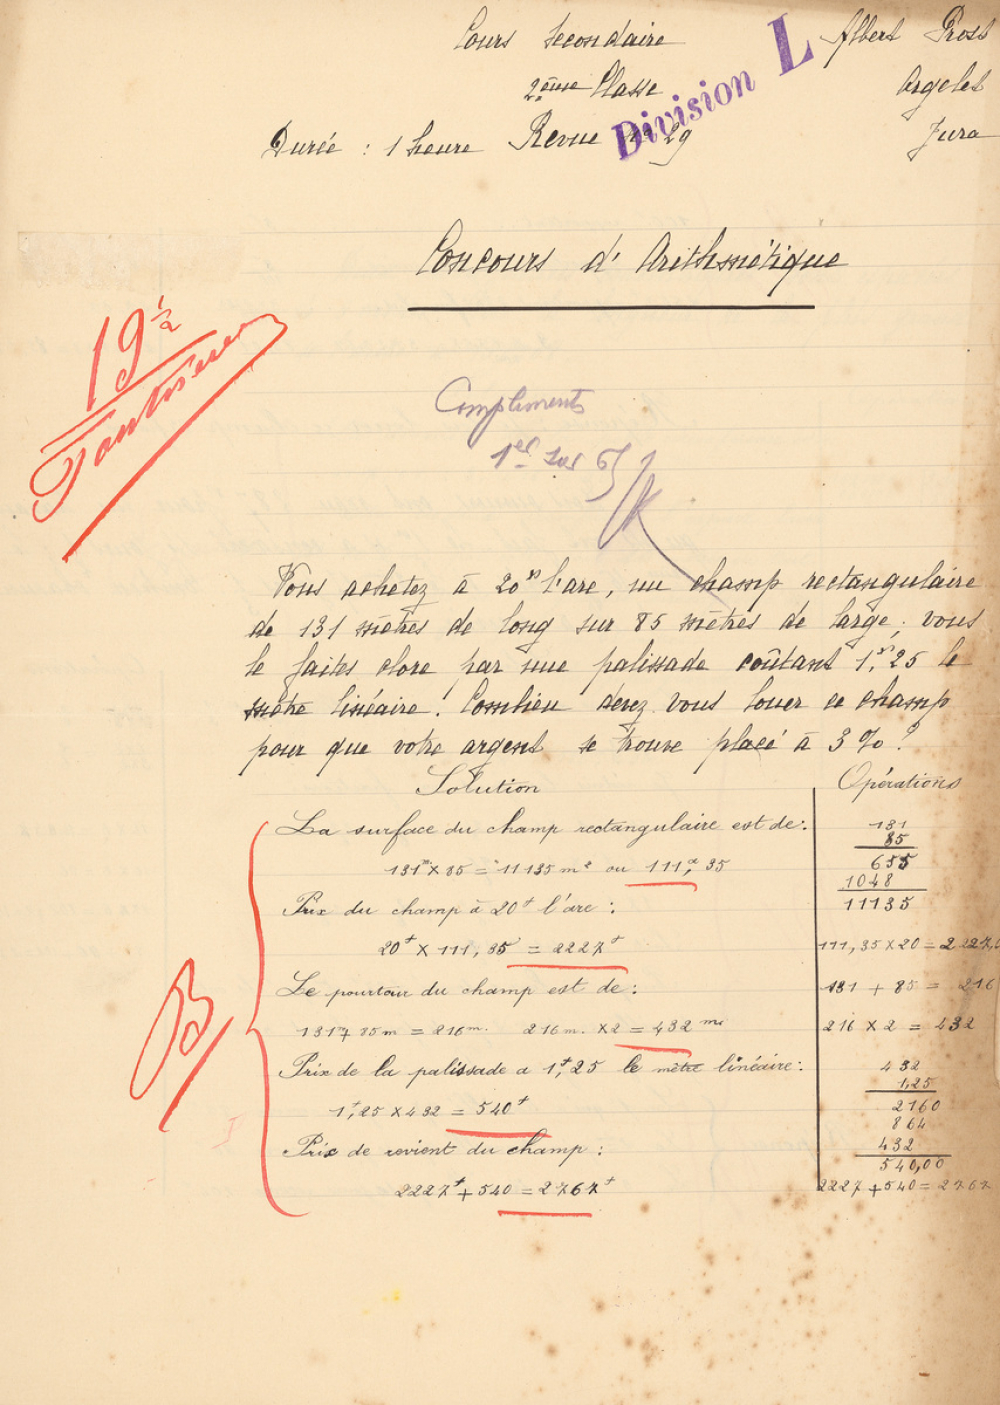 Cours Secondaire
Albert Prost
2ème Classe
Division L
Argelet
Durée : 1 heure
Revue n° 29
Jura
Concours d'Arithmétique
19 ½
Compliments
1er sur 6
Vous achetez à 20f l'are, un champ rectangulaire
de 131 mètres de long sur 85 mètres de large; vous
le faites clore par une palissade coûtant 1f,25 le
mètre linéaire. Combien devez vous louer ce champ
pour que votre argent se trouve placé à 3 % ?
Solution
Opérations
La surface du champ rectangulaire est de :
131m × 85 = 11135 m² ou 111a,35
Prix du champ à 20f l'are :
20f × 111,35 = 2227f
Le pourtour du champ est de :
131m + 85m = 216m. 216m. × 2 = 432 m
Prix de la palissade a 1f,25 le mètre linéaire :
1f,25 × 432 = 540f
Prix de revient du champ :
2227f + 540 = 2767f
B
131
85
655
1048
11135
111,35 × 20 = 2227,0
131 + 85 = 216
216 × 2 = 432
432
1,25
2160
864
432
540,00
2227 + 540 = 2767